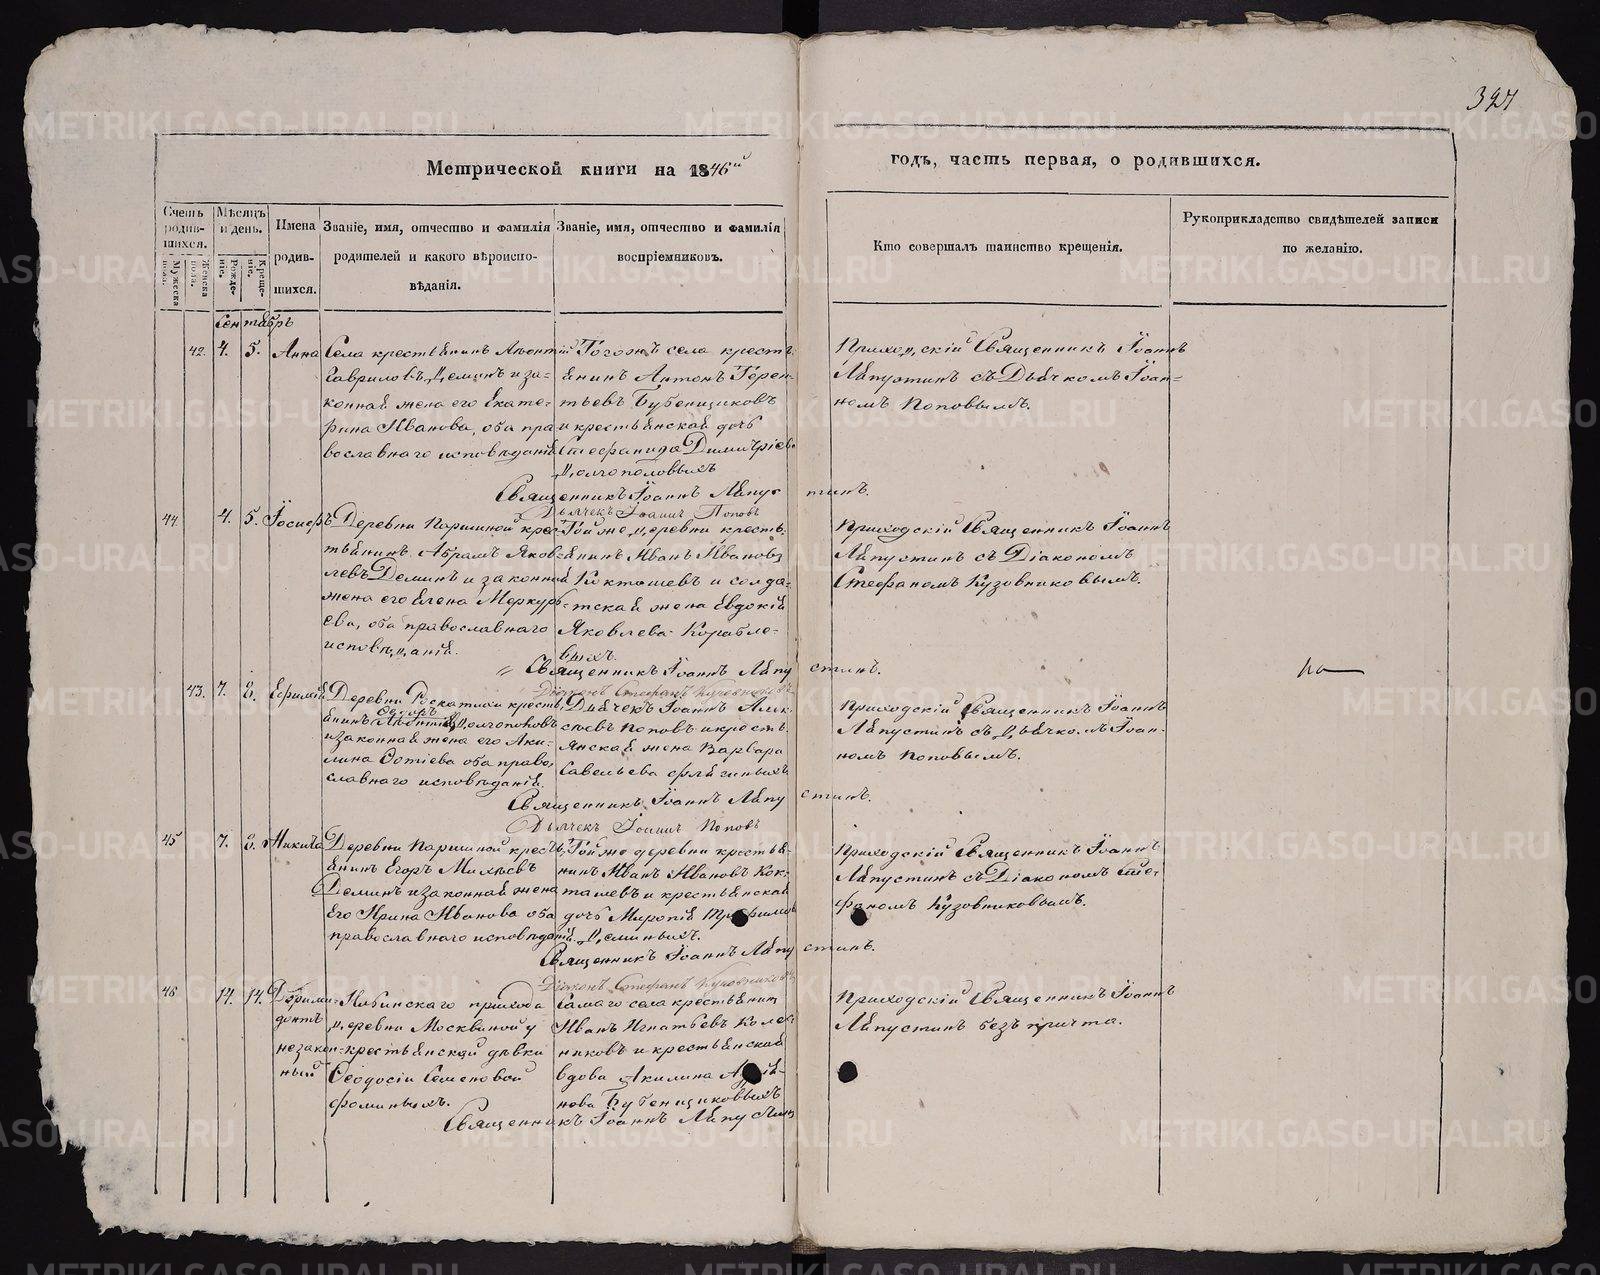 327
Метрической книги на 1846й
годъ, часть первая, о родившихся.
Счетъ родив-шихся.
Мужеска пола.
Женска пола.
Мѣсяцъ и день.
Рожде-нія.
Креще-нія.
Имена родив-шихся.
Званіе, имя, отчество и фамилія
родителей и какого вѣроиспо-
вѣданія.
Званіе, имя, отчество и фамилія
воспріемниковъ.
Кто совершалъ таинство крещенія.
Рукоприкладство свидѣтелей записи
по желанію.
Сентябрь
42. 4. 5. Анна
Села крестьянинъ Леонтій
Гавриловъ Деминъ и за-
конная жена его Екате-
рина Иванова, оба пра
вославнаго исповѣданія
Тогожъ села кресть
янинъ Антонъ Терен-
тьевъ Бубенщиковъ
и крестьянская дочь
Стефанида Димитріева
Долгополовыхъ
Приходскій Священникъ Іоаннъ
Ляпустинъ съ Дьячкомъ Іоан-
номъ Поповымъ.
Священникъ Іоаннъ Ляпустинъ.
Дьячекъ Іоаннъ Поповъ
44. 4. 5. Іосифъ
Деревни Паршиной крес
тьянинъ Абрамъ Яков-
левъ Деминъ и законная
жена его Елена Меркурь-
ева, оба православнаго
исповѣданія.
Тойже деревни кресть-
янинъ Иванъ Ивановъ
Коктошевъ и солда-
тская жена Евдокія
Яковлева Корабле-
выхъ.
Приходскій Священникъ Іоаннъ
Ляпустинъ съ Діакономъ
Стефаномъ Кузовниковымъ.
Священникъ Іоаннъ Ляпустинъ.
Діаконъ Стефанъ Кузовниковъ
43. 7. 8. Ефимія
Деревни Роскатихи кресть
янинъ Долгополовъ
и законная жена его Аки-
лина Фотіева оба право-
славнаго исповѣданія.
Дьячекъ Іоаннъ Алек
сѣевъ Поповъ и кресть
янская жена Варвара
Савельева
Приходскій Священникъ Іоаннъ
Ляпустинъ съ Дьячкомъ Іоан-
номъ Поповымъ.
Священникъ Іоаннъ Ляпустинъ.
Дьячекъ Іоаннъ Поповъ
45 7. 8. Никита
Деревни Паршиной кресть
янинъ Егоръ Михѣевъ
Деминъ и законная жена
Его Ирина Иванова оба
православнаго исповѣданія.
Тойже деревни крестья-
нинъ Иванъ Ивановъ Кок-
ташевъ и крестьянская
дочь Миропія
Деминыхъ.
Приходскій Священникъ Іоаннъ
Ляпустинъ съ Діакономъ Сте-
фаномъ Кузовниковымъ.
Священникъ Іоаннъ Ляпустинъ.
Діаконъ Стефанъ Кузовниковъ
46 14. 14.
незакон-
ный
прихода
деревни Москвиной у
крестьянской дѣвки
Феодосіи Семеновой
Фоминыхъ.
Самаго села крестьянин
Иванъ Игнатьевъ Колес
никовъ и крестьянская
вдова Акилина
нова Бубенщиковыхъ
Приходскій Священникъ Іоаннъ
Ляпустинъ безъ причта.
Священникъ Іоаннъ Ляпустинъ
METRIKI.GASO-URAL.RU